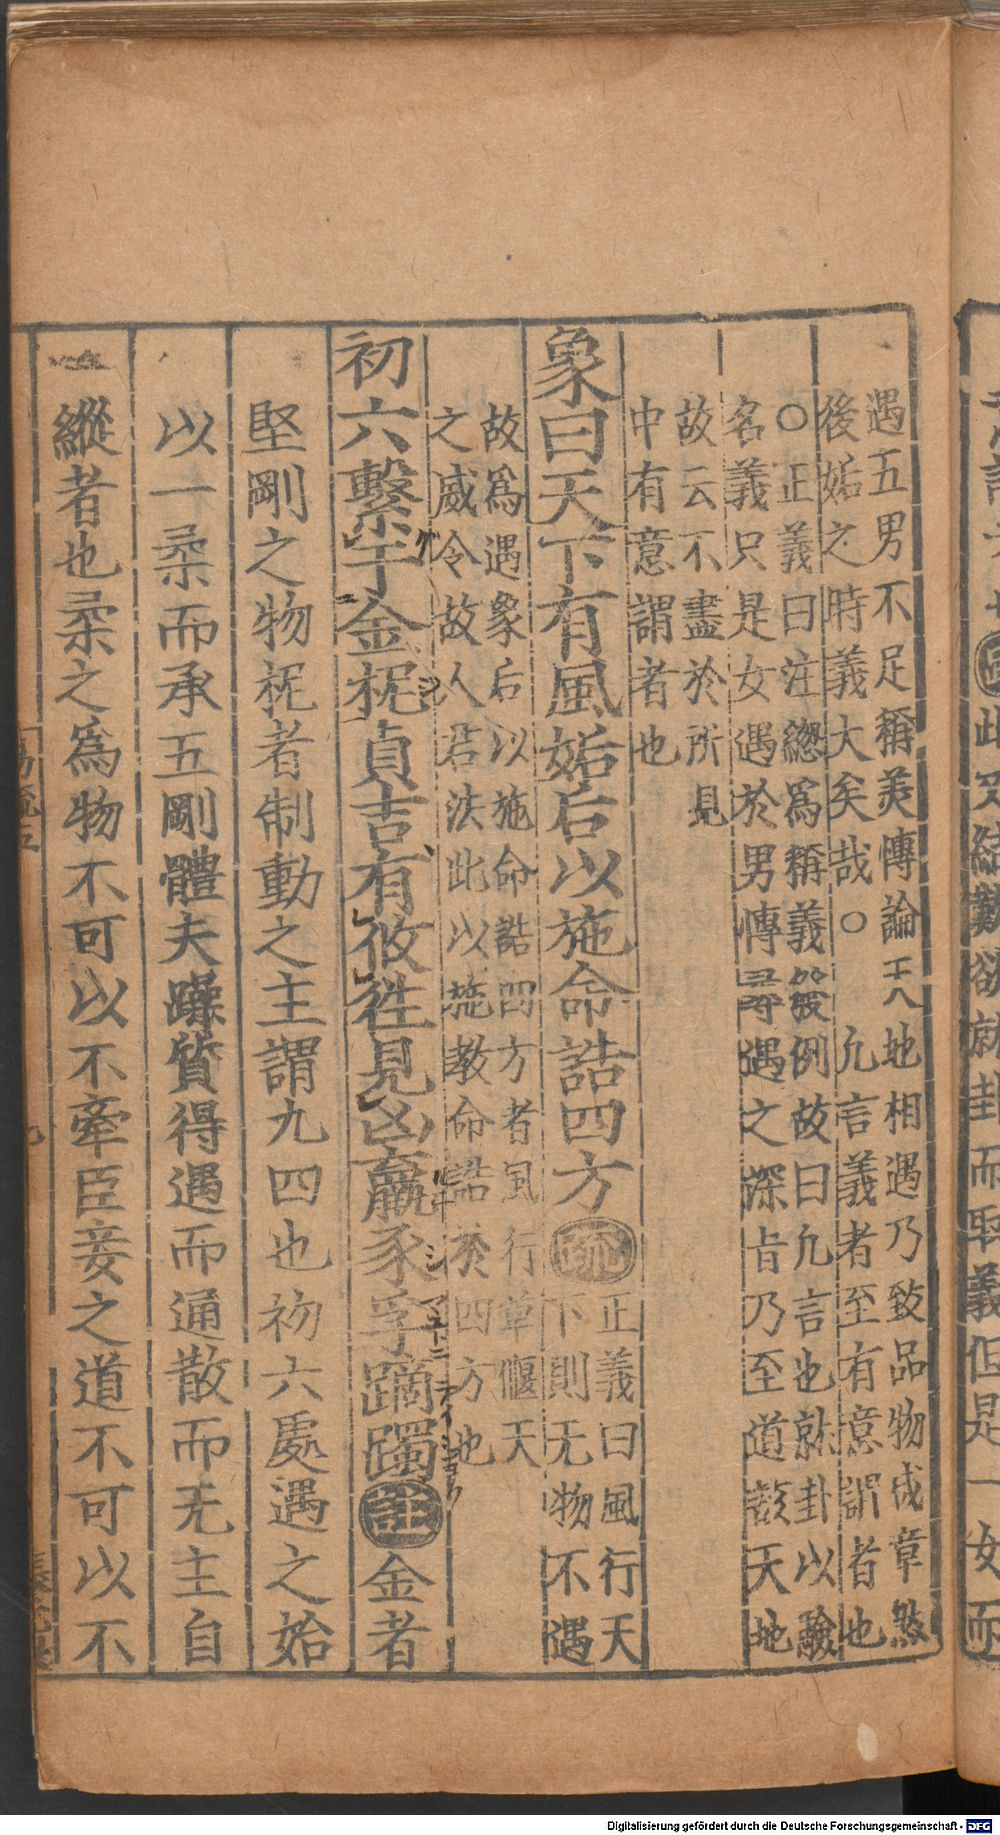 遇五男不足稱美博論天地相遇乃致品物成章然
後姤之時義大矣哉○凢言義者至有意謂者也
○正義曰注緫爲稱義發例故曰凢言也就卦以驗
名義只是女遇於男博尋遇之深旨乃至道該天地
故云不盡於所見
中有意謂者也
象曰天下有風姤后以施命誥四方疏
正義曰風行天
下則无物不遇
故爲遇象后以施命誥四方者風行草偃天
之威令故人君法此以施教命誥於四方也
初六繫于金柅貞吉有攸往見凶羸豕孚蹢躅注金者
堅剛之物柅者制動之主謂九四也初六處遇之始
以一柔而承五剛體夫躁質得遇而通散而无主自
縱者也柔之爲物不可以不牽臣妾之道不可以不
易疏五
九
Digitalisierung gefördert durch die Deutsche Forschungsgemeinschaft - DFG